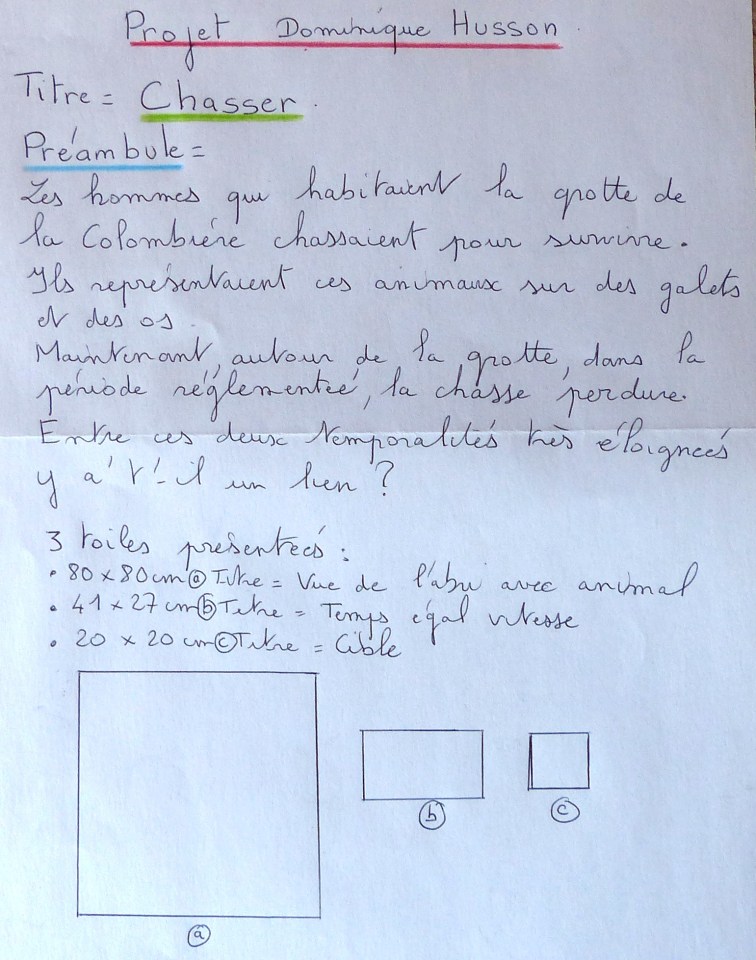 Projet Dominique Husson
Titre = Chasser.
Préambule =
Les hommes qui habitaient la grotte de
la Colombière chassaient pour survivre.
Ils représentaient ces animaux sur des galets
et des os.
Maintenant, autour de la grotte, dans la
période réglementée, la chasse perdure.
Entre ces deux temporalités très éloignées
y a' t'-il un lien ?
3 toiles présentées :
• 80 x 80 cm ⓐ Titre = Vue de l'abri avec animal
• 41 x 27 cm ⓑ Titre = Temps égal vitesse
• 20 x 20 cm ⓒ Titre = Cible
ⓑ ⓒ
ⓐ